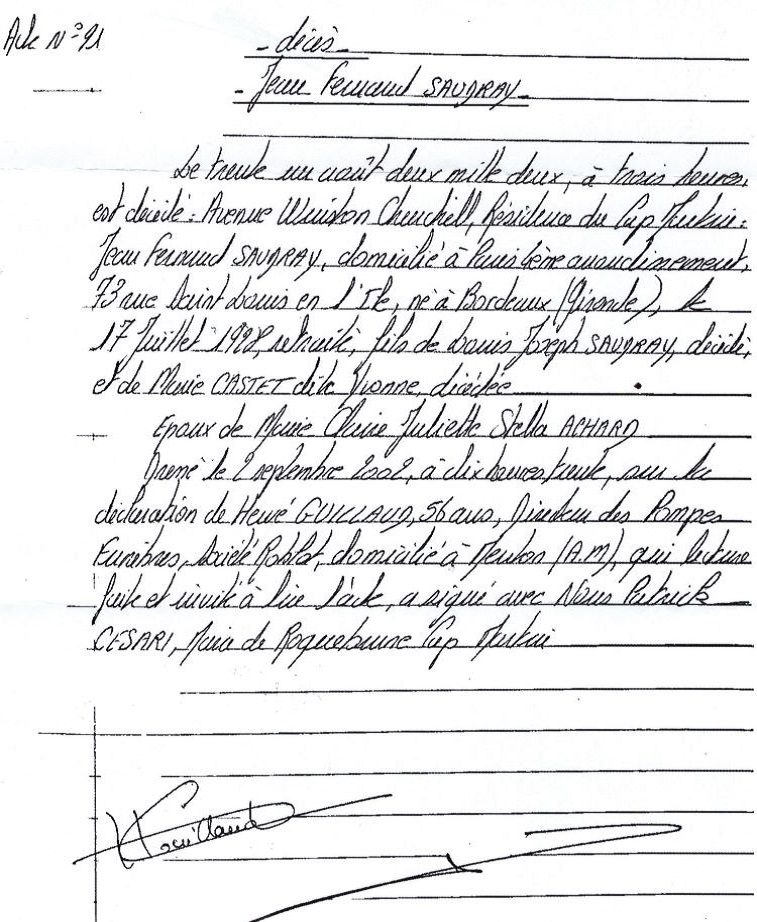 Acte N° 91
- décès -
- Jean Fernand SAUDRAY -
Le trente un août deux mille deux, à trois heures,
est décédé : Avenue Winston Churchill, Résidence du Cap Martin :
Jean Fernand SAUDRAY, domicilié à Paris 4ème arrondissement,
73 rue Saint Louis en l'Ile, né à Bordeaux (Gironde), le
17 Juillet 1928, retraité, fils de Louis Joseph SAUDRAY, décédé,
et de Marie CASTET dite Yvonne, décédée
Epoux de Marie Claire Juliette Stella ACHARD
Dressé le 2 septembre 2002, à dix heures trente, sur la
déclaration de Hervé GUILLAUD, 56 ans, Directeur des Pompes
Funèbres, Société Roblot, domicilié à Menton (A.M), qui lecture
faite et invité à lire l'acte, a signé avec Nous Patrick
CESARI, Maire de Roquebrune Cap Martin